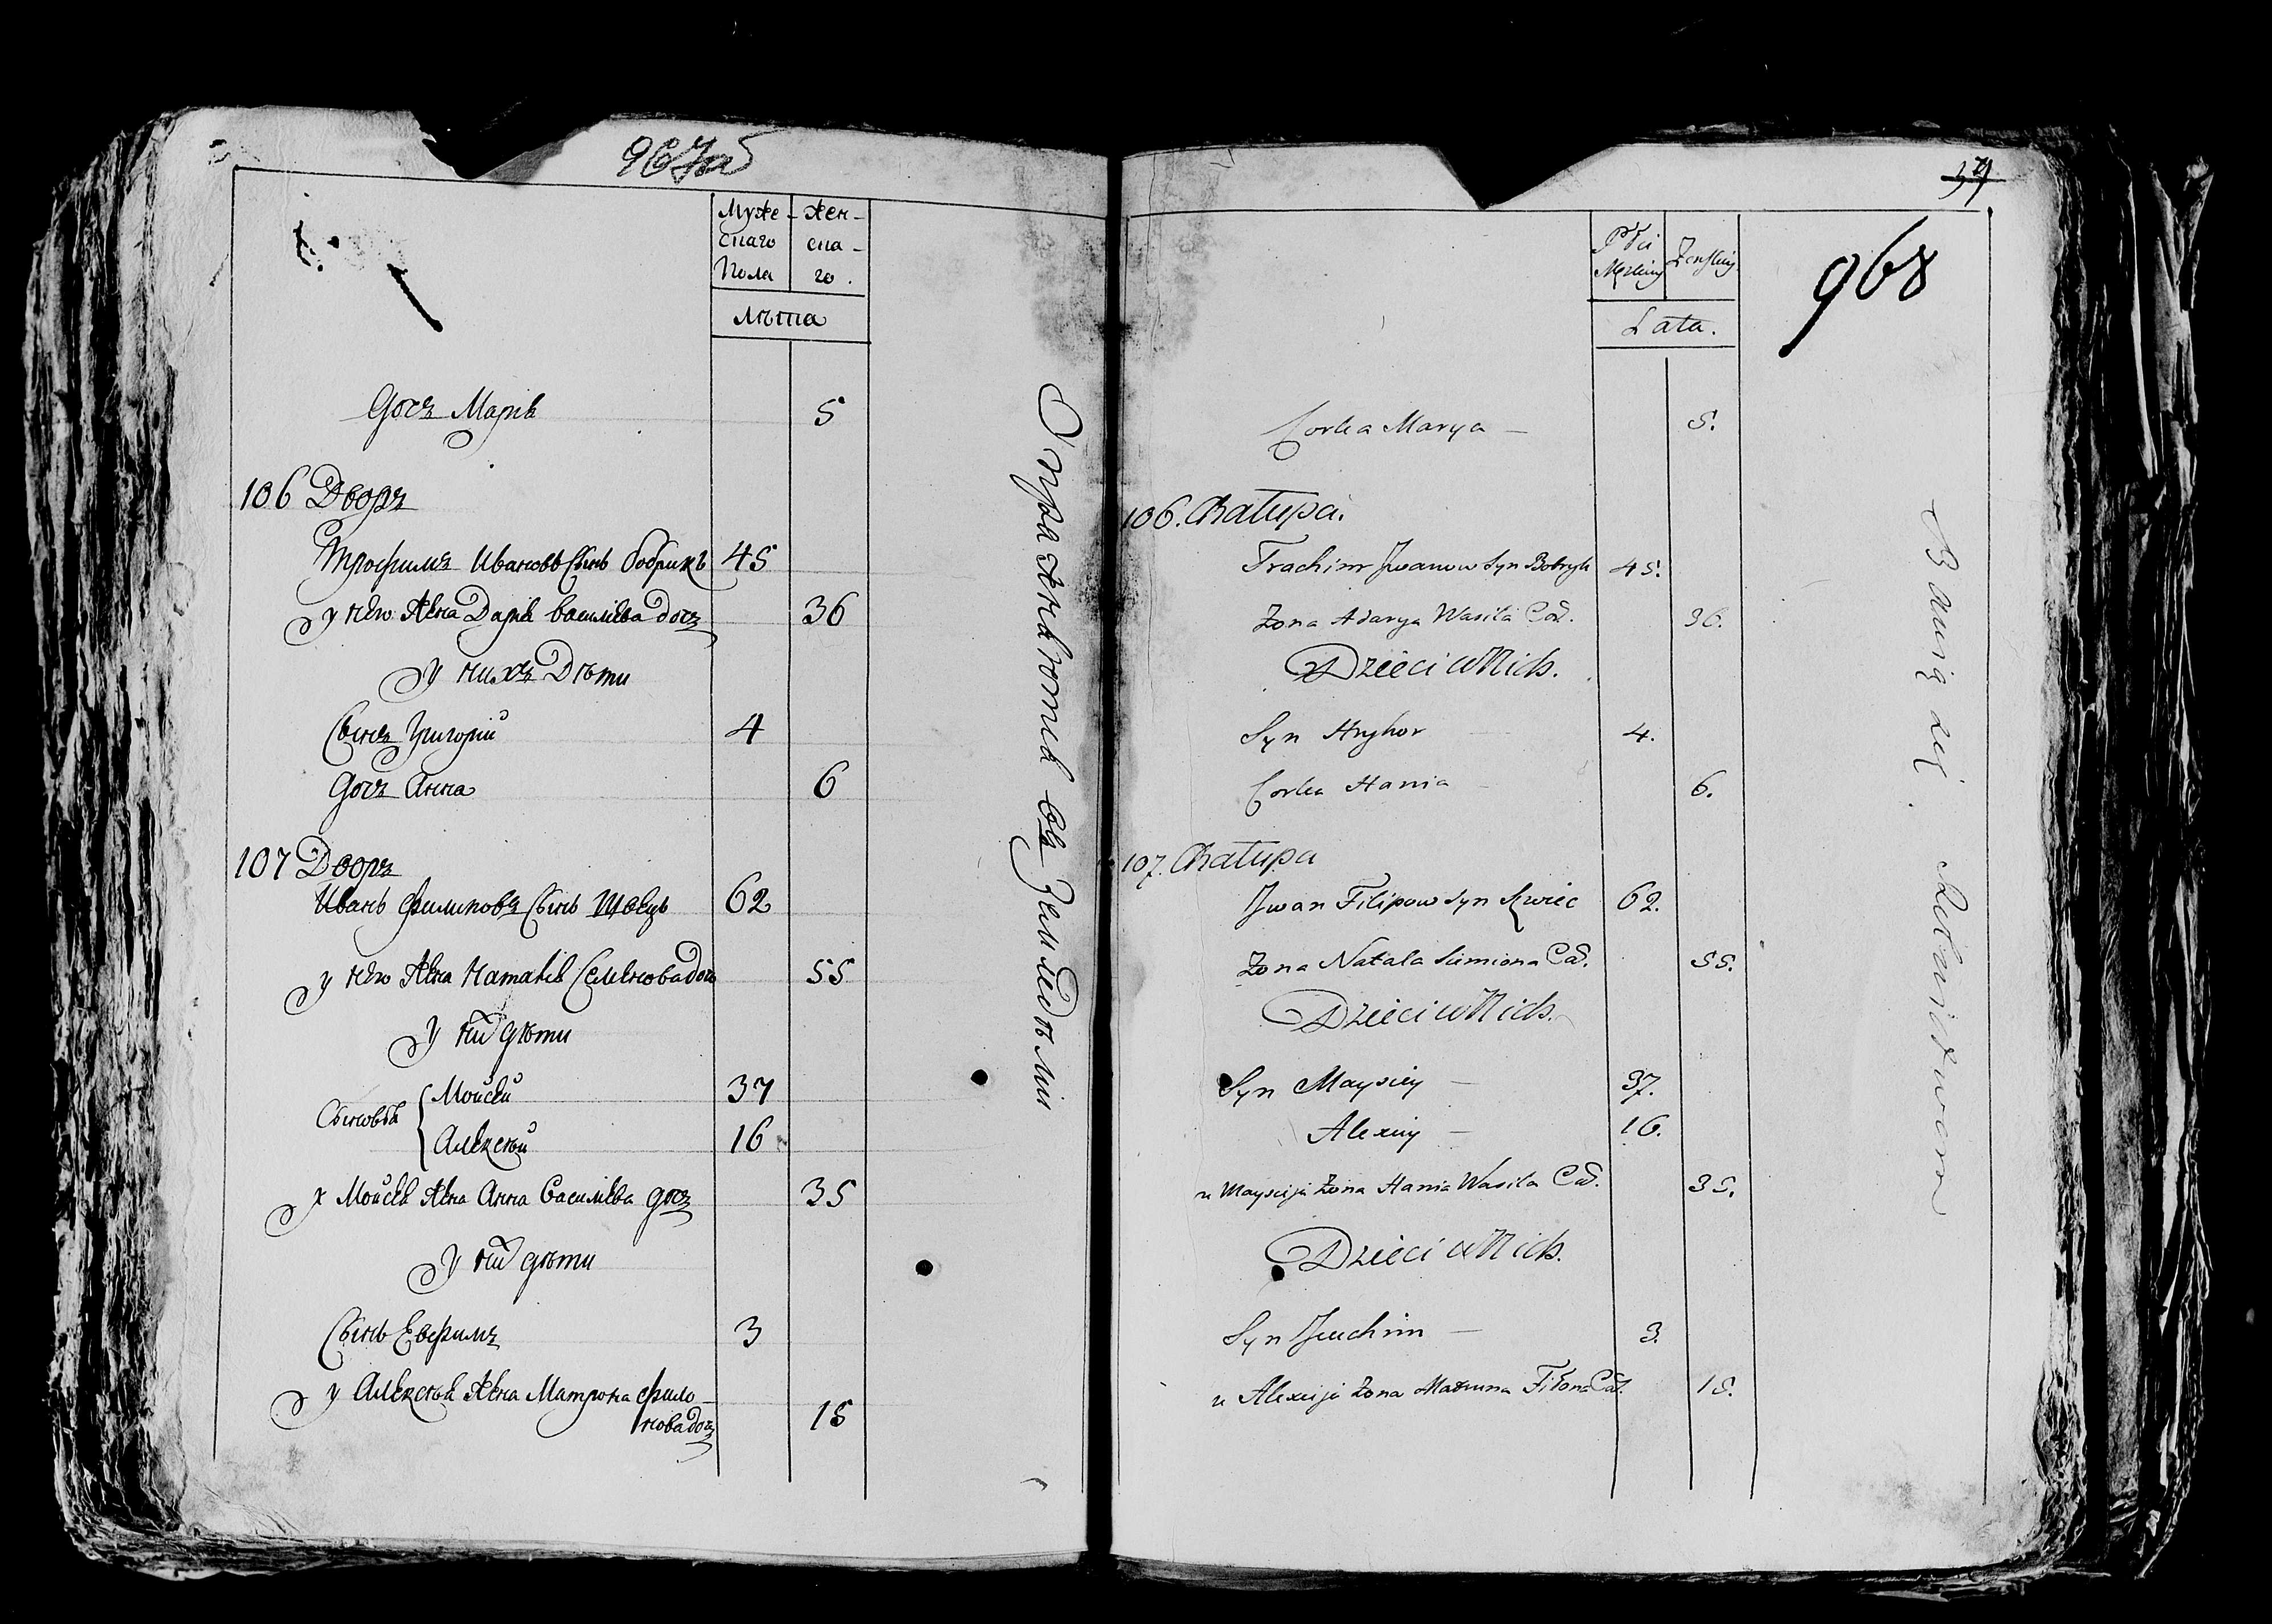 967об
Муже- жен-
скаго ска-
Пола го.
лѣта
Дочь Марія 5
106 Дворъ
Трофимъ Ивановъ Сынъ бобрикъ 45
у него Жена Дарія василіева дочь 36
у нихъ Дѣти
Сынъ Григорій 4
Дочь Анна 6
107 Дворъ
Иванъ филиповъ Сынъ Швецъ 62
у него Жена Наталія Семіонова дочь 55
у них дѣти
Сыновья Мойсей 37
Алексѣй 16
у Мойсея Жена Анна Василіева дочь 35
у них дѣти
Сынъ Евфимъ 3
у Алексѣя Жена Матрона фило-
нова дочь 15
Упражняются въ Земледѣліи
37
968
Płci Męzkiey Żenskiey
Lata.
Corka Marya — 5.
106. Chałupa.
Trochim Jwanow Syn Bobryk 45.
Żona Adarya Wasila Cod. 36.
Dzieci u Nich.
Syn Hryhor 4.
Corka Hania 6.
107. Chałupa
Jwan Filipow Syn Szwiec 62.
Żona Natala Simiona Cod. 55.
Dzieci u Nich.
Syn Maysiey — 37.
Alexiey — 16.
u Maysieja Żona Hania Wasila Cod. 35.
Dzieci u Nich.
Syn Juchim — 3.
u Alexieja Żona Matruna Filona Cod. 15.
Bawią się. Rolnictwem